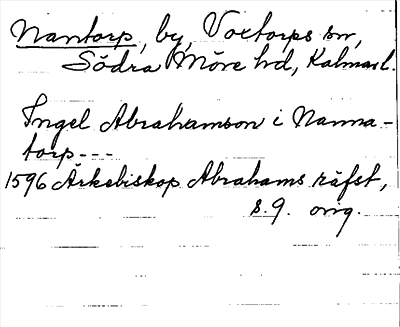 Nantorp, by, Voxtorps sn,
Södra Möre hd, Kalmar l.
Ingel Abrahamson i Nanna-
torp---
1596 Ärkebiskop Abrahams räfst,
s. 9. orig.